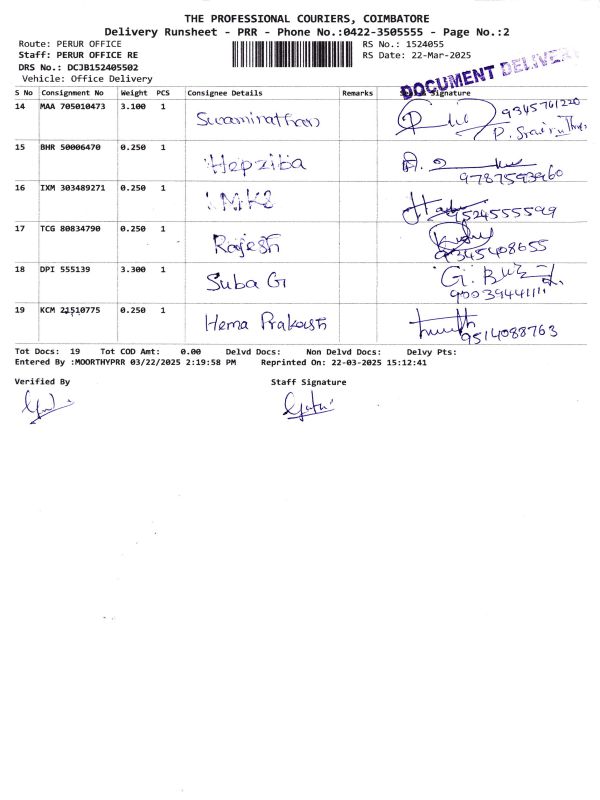 THE PROFESSIONAL COURIERS, COIMBATORE
Delivery Runsheet - PRR - Phone No.:0422-3505555 - Page No.:2
Route: PERUR OFFICE RS No.: 1524055
Staff: PERUR OFFICE RE RS Date: 22-Mar-2025
DRS No.: DCJB152405502
Vehicle: Office Delivery
DOCUMENT DELIVERY
S No Consignment No Weight PCS Consignee Details Remarks Signature
14 MAA 705010473 3.100 1 Swaminathan 9345761220
15 BHR 50006470 0.250 1 Hepziba
9787593960
16 IXM 303489271 0.250 1
9524555599
17 TCG 80834790 0.250 1 Rajesh
9345408655
18 DPI 555139 3.300 1 Suba G
19 KCM 21510775 0.250 1 Hema Prakash
9514088763
Tot Docs: 19 Tot COD Amt: 0.00 Delvd Docs: Non Delvd Docs: Delvy Pts:
Entered By :MOORTHYPRR 03/22/2025 2:19:58 PM Reprinted On: 22-03-2025 15:12:41
Verified By Staff Signature